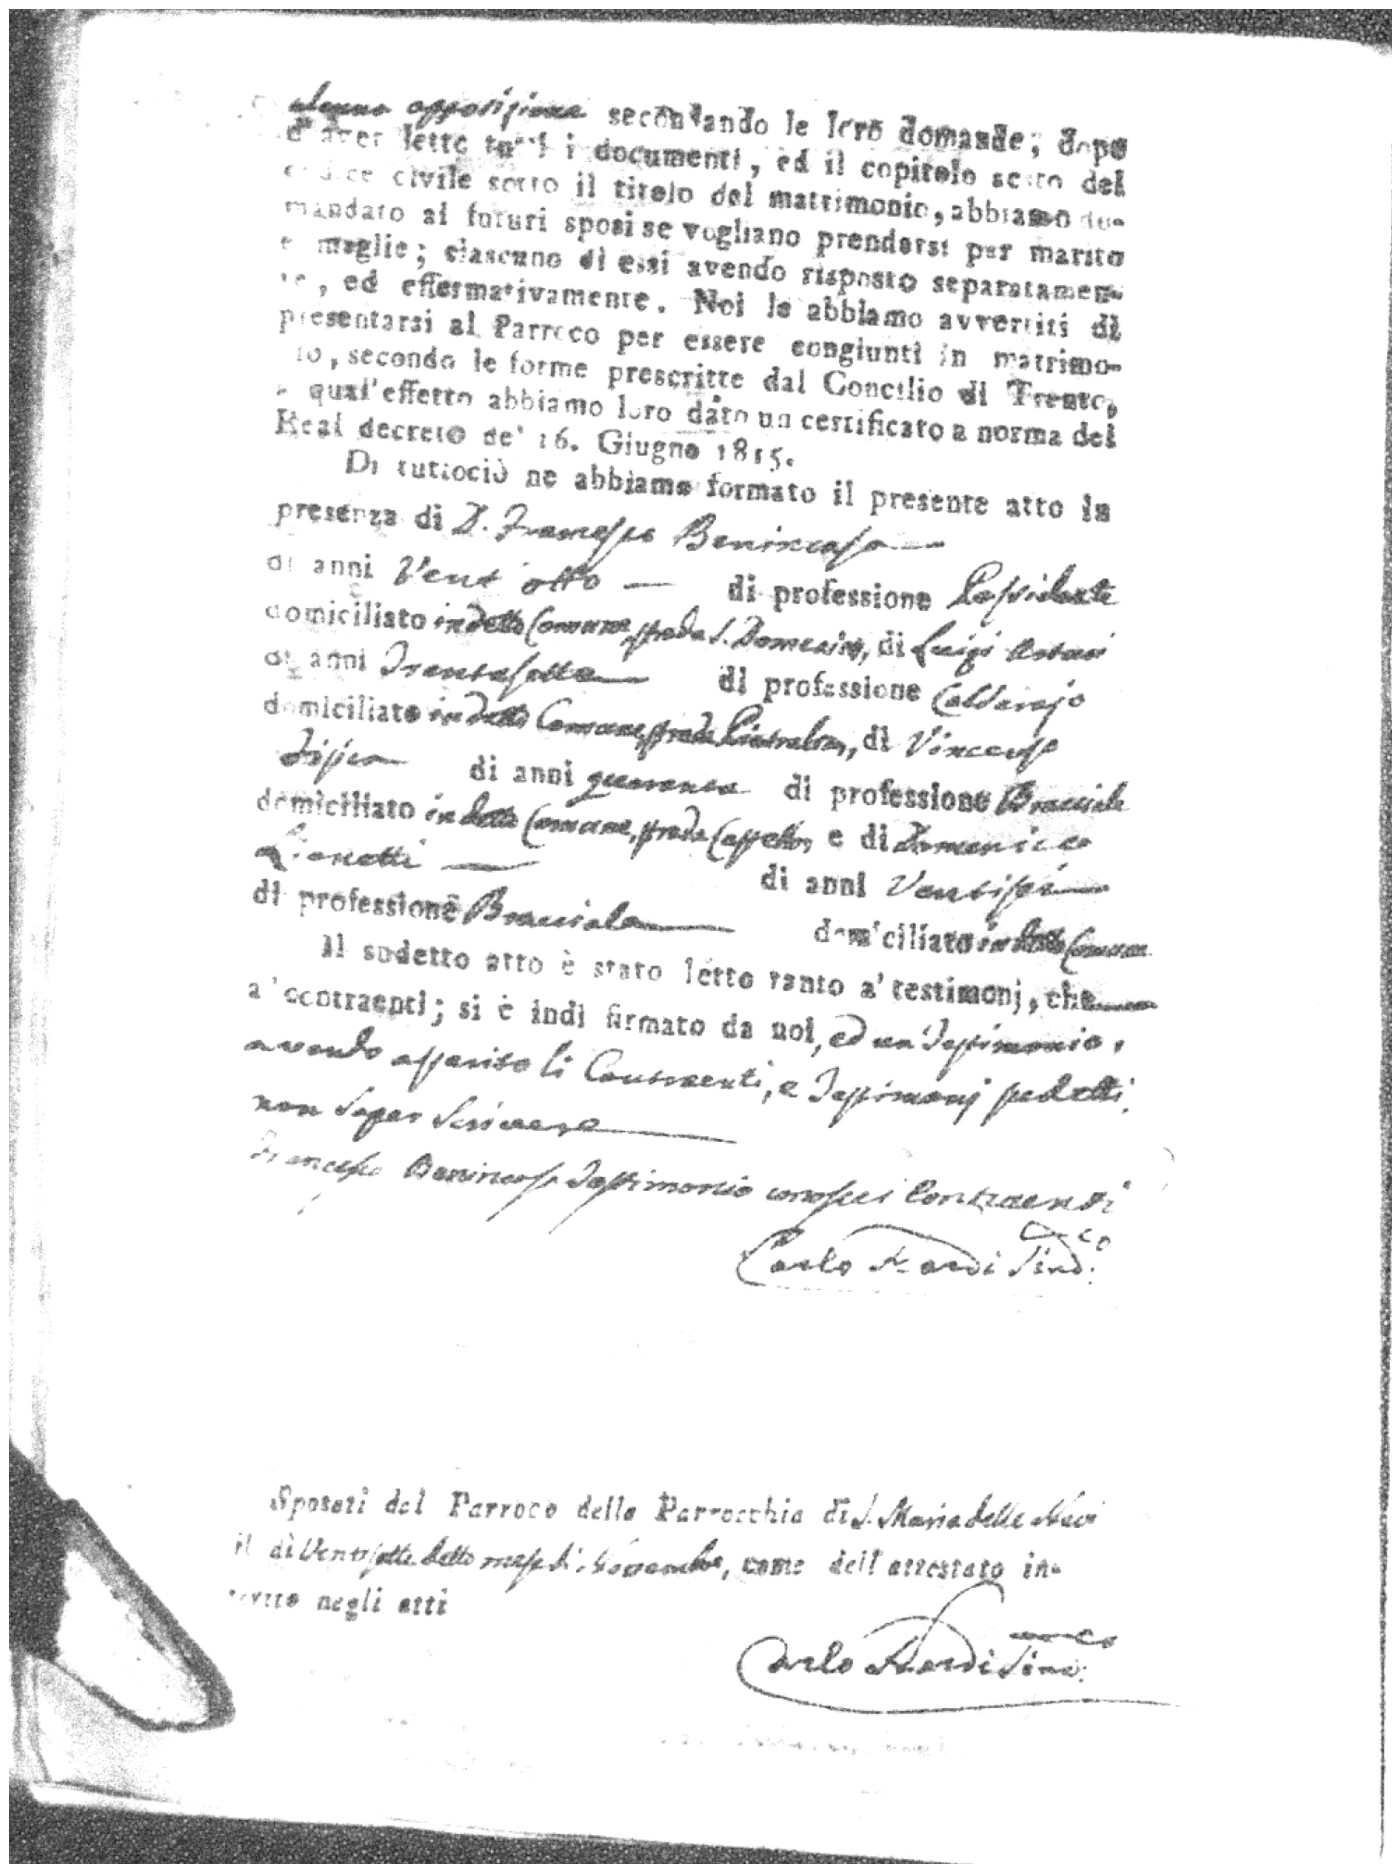 alcuna opposizione secondando le loro domande; dopo
d'aver letto tutti i documenti, ed il capitolo sesto del
codice civile sotto il titolo del matrimonio, abbiamo do-
mandato ai futuri sposi se vogliano prendersi per marito
e moglie; ciascuno di essi avendo risposto separatamen-
te, ed effermativamente. Noi le abbiamo avvertiti di
presentarsi al Parroco per essere congiunti in matrimo-
nio, secondo le forme prescritte dal Concilio di Trento,
a qual'effetto abbiamo loro dato un certificato a norma del
Real decreto de' 16. Giugno 1815.
Di tuttociò ne abbiamo formato il presente atto in
presenza di D. Francesco Benincasa
di anni Vent'otto di professione Possidente
domiciliato in detto Comune, strada S. Domenico, di Luigi
di anni Trentasette di professione Caldarajo
domiciliato in detto Comune, strada di Vincenzo
di anni quaranta di professione Bracciale
domiciliato in detto Comune, strada Cappello, e di Domenico
Lionetti di anni Ventisei
di professione Bracciale domiciliato in detto Comune
Il sudetto atto è stato letto tanto a' testimonj, che
a' contraenti; si è indi firmato da noi, ed un Testimonio,
avendo asserito li Contraenti, e Testimonj sudetti
non saper scrivere
Francesco Benincasa Testimonio conosco i Contraenti
Carlo Sind.co
Sposati dal Parroco della Parrocchia di S. Maria delle Nevi
il dì Ventisette detto mese di Novembre, come dell'attestato in-
serito negli atti
Carlo Sind.co